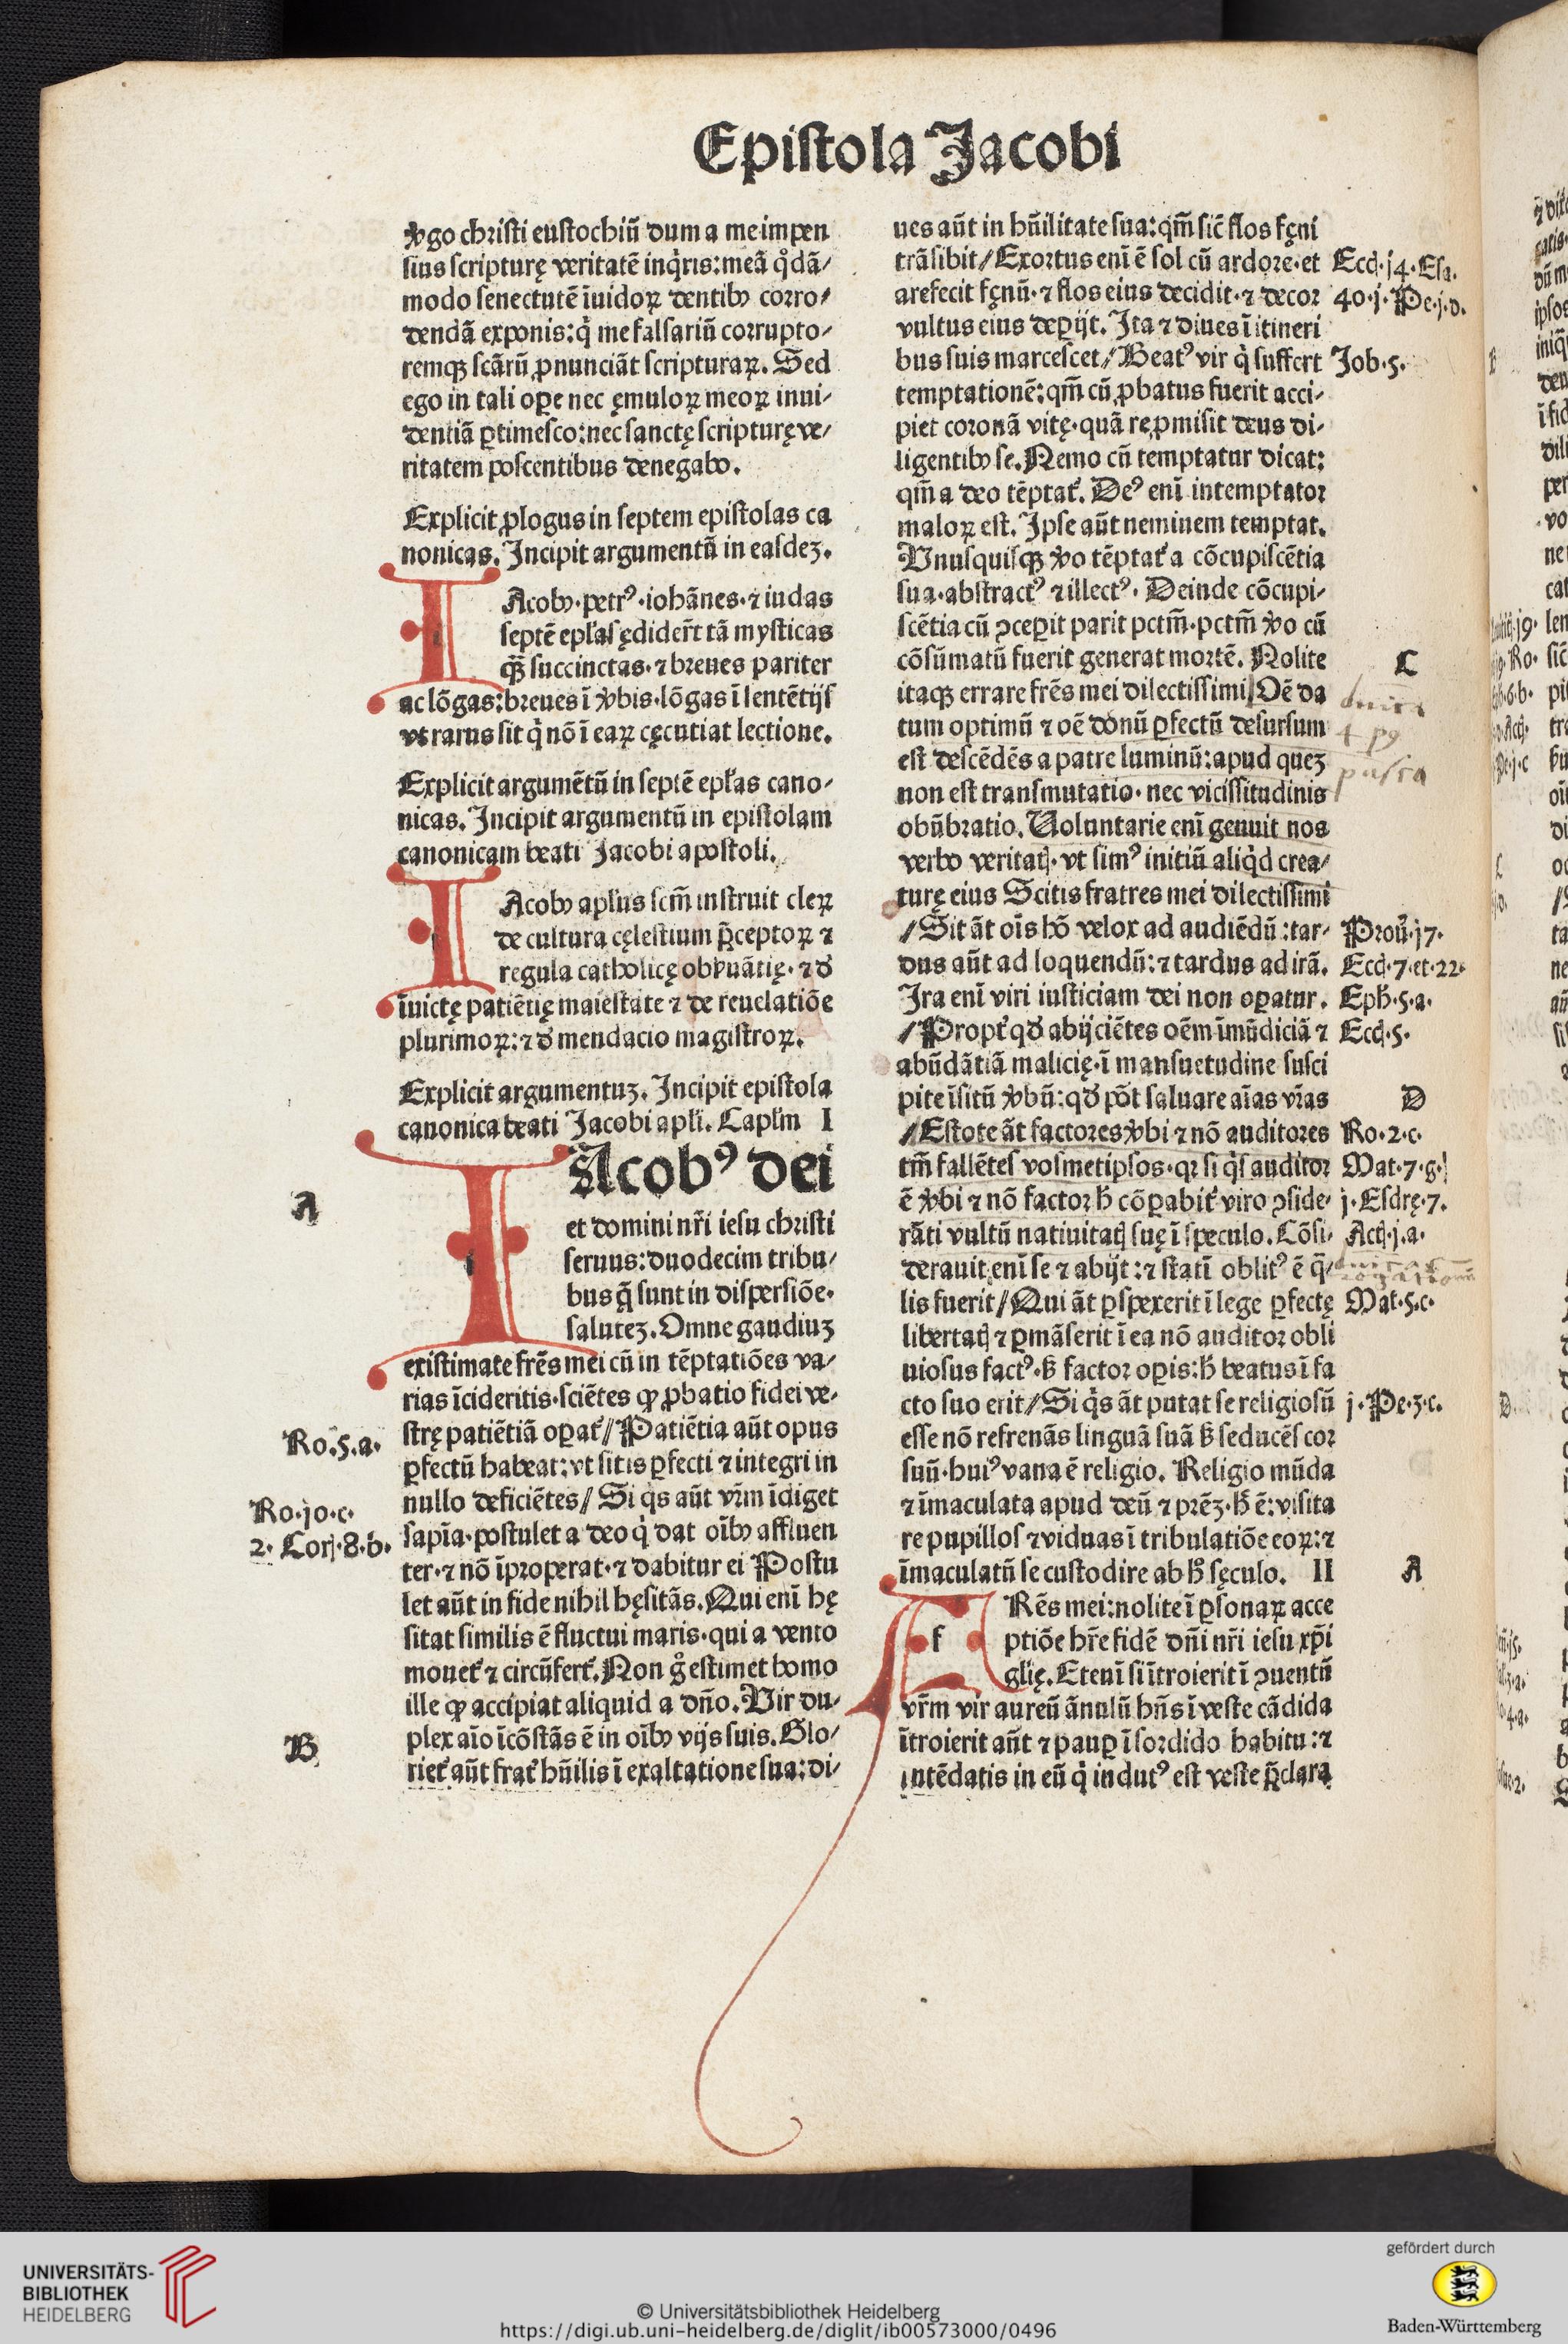 Epistola Jacobi
v̾go christi eustochiũ dum a me impen
sius scripturę veritatẽ inq̇ris: meã q̊dã/
modo senectutẽ ĩuidoꝝ dentibꝰ corro/
dendã exponis: q̇ me falsariũ corrupto/
remqꝫ scãrũ ꝓnunciãt scripturaꝝ. Sed
ego in tali oꝑe nec ęmuloꝝ meoꝝ inui/
dentiã ꝑtimesco: nec sanctę scripturę ve/
ritatem poscentibus denegabo.
Explicit ꝓlogus in septem epistolas ca
nonicas. Incipit argumentũ in easdeʒ.
IAcobꝰ·petrꝰ·iohãnes·⁊ iudas
septẽ epl̃as ędider̃t tã mysticas
qꝫ̃ succinctas·⁊ breues pariter
ac lõgas: breues ĩ v̾bis·lõgas ĩ sentẽtijs
vt rarus sit q̇ nõ ĩ eaꝝ cęcutiat lectione.
Explicit argumẽtũ in septẽ epl̃as cano/
nicas. Incipit argumentũ in epistolam
canonicam beati Jacobi apostoli.
IAcobꝰ apl̃us scm̃ instruit cleꝝ
de cultura cęlestium p̃ceptoꝝ ⁊
regula catholicę obẜuãtię·⁊ đ
ĩuictę patiẽtię maiestate ⁊ de reuelatiõe
plurimoꝝ: ⁊ đ mendacio magistroꝝ.
Explicit argumentuʒ. Incipit epistola
canonica beati Jacobi apl̃i. Capl̃m I
IAcobꝰ dei
et domini nr̃i iesu christi
seruus: duodecim tribu/
bus q̃ sunt in dispersiõe·
saluteʒ. Omne gaudiuʒ
existimate frẽs mei cũ in tẽptatiões va/
rias ĩcideritis·sciẽtes ꝙ ꝓbatio fidei ve·
strę patiẽtiã oꝑat᷑/ Patiẽtia aũt opus
ꝑfectũ habeat: vt sitis ꝑfecti ⁊ integri in
nullo deficiẽtes/ Si q̇s aũt vr̃m ĩdiget
sapĩa·postulet a deo q̇ dat oĩbꝰ affluen
ter·⁊ nõ ĩproperat·⁊ dabitur ei Postu
let aũt in fide nihil hęsitãs. Qui enĩ hę
sitat similis ẽ fluctui maris·qui a vento
mouet᷑ ⁊ circũfert᷑. Non g̊ estimet homo
ille ꝙ accipiat aliquid a dño. Vir du/
plex aĩo ĩcõstãs ẽ in oĩbꝰ vijs suis. Glo/
riet᷑ aũt frat᷑ hũilis ĩ exaltatione sua: di/
A
Ro.5.a.
Ro·jo·c·
2. Corꝭ·8·b·
B
ues aũt in hũilitate sua: qm̃ sic̃ flos fęni
trãsibit/ Exortus enĩ ẽ sol cũ ardore·et
arefecit fęnũ·⁊ flos eius decidit·⁊ decor
vultus eius deꝑijt. Ita ⁊ diues ĩ itineri
bus suis marcescet/ Beatꝰ vir q̇ suffert
temptationẽ: qm̃ cũ ꝓbatus fuerit acci/
piet coronã vitę·quã reꝓmisit deus di/
ligentibꝰ se. Nemo cũ temptatur dicat:
qm̃ a deo tẽptat᷑. Deꝰ enĩ intemptator
maloꝝ est. Ipse aũt neminem temptat.
Vnusquisqꝫ v̾o tẽptat᷑ a cõcupiscẽtia
sua·abstractꝰ ⁊ illectꝰ. Deinde cõcupi/
scẽtia cũ ꝯceꝑit parit pctm̃·pctm̃ v̾o cũ
cõsũmatũ fuerit generat mortẽ. Nolite
itaqꝫ errare frẽs mei dilectissimi/ Oẽ da
tum optimũ ⁊ oẽ donũ ꝑfectũ desursum
est descẽdẽs a patre luminũ: apud queʒ
non est transmutatio·nec vicissitudinis
obũbratio. Voluntarie enĩ genuit nos
verbo veritatꝭ·vt simꝰ initiũ aliq̇d crea/
turę eius Scitis fratres mei dilectissimi
/ Sit ãt oĩs hõ velox ad audiẽdũ: tar/
dus aũt ad loquendũ: ⁊ tardus ad irã.
Ira enĩ viri iusticiam dei non oꝑatur.
/ Propt᷑ qđ abijciẽtes oẽm ĩmũdiciã ⁊
abũdãtiã malicię·ĩ mansuetudine susci
pite ĩsitũ v̾bũ: qđ põt saluare aĩas vr̃as
/ Estote ãt factores v̾bi ⁊ nõ auditores
tm̃ fallẽtes vosmetipsos·qꝛ si q̇s auditor
ẽ v̾bi ⁊ nõ factor h̃ cõꝑabit᷑ viro ꝯside/
rãti vultũ natiuitatꝭ suę ĩ speculo. Cõsi/
derauit enĩ se ⁊ abijt: ⁊ statĩ oblitꝰ ẽ q̃/
lis fuerit/ Qui ãt ꝑspexerit ĩ lege ꝑfectę
libertatꝭ ⁊ ꝑmãserit ĩ ea nõ auditor obli
uiosus factꝰ·ẜ factor oꝑis: h̃ beatus ĩ fa
cto suo erit/ Si q̇s ãt putat se religiosũ
esse nõ refrenãs linguã suã ẜ seducẽs cor
suũ·huiꝰ vana ẽ religio. Religio mũda
⁊ ĩmaculata apud deũ ⁊ prẽʒ·h̃ ẽ: visita
re pupillos ⁊ viduas ĩ tribulatiõe eoꝝ: ⁊
ĩmaculatũ se custodire ab h̊ sęculo. II
fRẽs mei: nolite ĩ ꝑsonaꝝ acce
ptiõe hr̃e fidẽ dñi nr̃i iesu xp̃i
glię. Etenĩ si ĩtroierit ĩ ꝯuentũ
vr̃m vir aureũ ãnulũ hñs ĩ veste cãdida
ĩtroierit aũt ⁊ pauꝑ ĩ sordido habitu: ⁊
intẽdatis in eũ q̇ indutꝰ est veste p̃clara
Eccꝭ·j4·Esa.
40·j·Pe·j·d.
Job·5.
C
dnica
4 pꝰ
pasca
Prou᷑·j7·
Eccꝭ·7·et·22·
Eph̃·5·a·
Eccꝭ·5.
D
Ro·2·c·
Mat·7·g·
j·Esdrę·7.
Actꝭ·j.a·
Mat·5·c·
j·Pe·3·c.
A
UNIVERSITÄTS-
BIBLIOTHEK
HEIDELBERG
© Universitätsbibliothek Heidelberg
https://digi.ub.uni-heidelberg.de/diglit/ib00573000/0496
gefördert durch
Baden-Württemberg